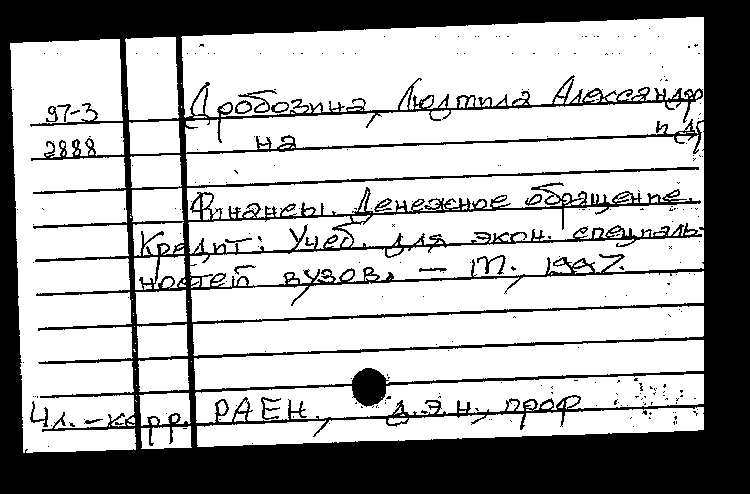 97-3 Дробозина, Людмила Александров
2888 на и др
Финансы. Денежное обращение.
Кредит: Учеб. для экон. специаль-
ностей вузов. — М., 1997.
Чл.-корр. РАЕН., д.э.н., проф